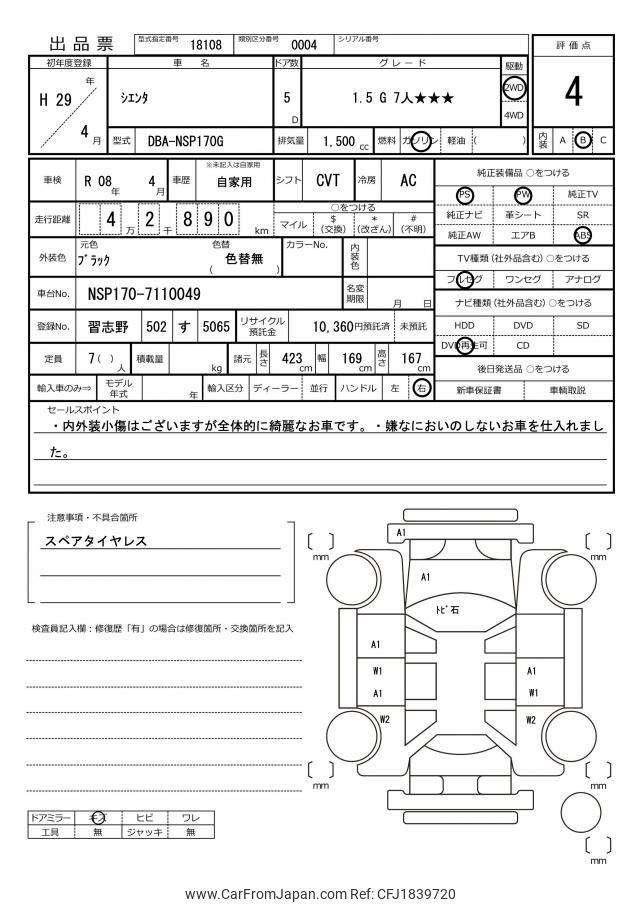 出品票
型式指定番号 18108 類別区分番号 0004 シリアル番号
初年度登録 車名 ドア数 グレード 駆動 評価点
H 29 年 4 月
シエンタ 5 D 1.5 G 7人★★★ 2WD 4WD 4
型式 DBA-NSP170G 排気量 1,500 cc 燃料 ガソリン 軽油 ( ) 内装 A B C
車検 R 08 年 4 月 車歴 ※未記入は自家用 自家用 シフト CVT 冷房 AC
走行距離 4 2 8 9 0 万 千 km
○をつける
マイル $ (交換) * (改ざん) # (不明)
外装色 元色 ブラック 色替 ( 色替無 ) カラーNo. 内装色
車台No. NSP170-7110049 名変期限 月 日
登録No. 習志野 502 す 5065 リサイクル預託金 10,360円預託済 未預託
定員 7 ( ) 人 積載量 kg 諸元 長さ 423 cm 幅 169 cm 高さ 167 cm
輸入車のみ⇒ モデル年式 年 輸入区分 ディーラー 並行 ハンドル 左 右
純正装備品 ○をつける
PS PW 純正TV
純正ナビ 革シート SR
純正AW エアB ABS
TV種類 (社外品含む) ○をつける
フルセグ ワンセグ アナログ
ナビ種類 (社外品含む) ○をつける
HDD DVD SD
DVD再生可 CD
後日発送品 ○をつける
新車保証書 車輌取説
セールスポイント
・内外装小傷はございますが全体的に綺麗なお車です。・嫌なにおいのしないお車を仕入れまし
た。
注意事項・不具合箇所
スペアタイヤレス
検査員記入欄：修復歴「有」の場合は修復箇所・交換箇所を記入
ドアミラー キズ ヒビ ワレ
工具 無 ジャッキ 無
mm
mm
A1
A1
トビ石
A1
W1
A1
W2
A1
W1
W2
mm
mm
mm
www.CarFromJapan.com Ref: CFJ1839720